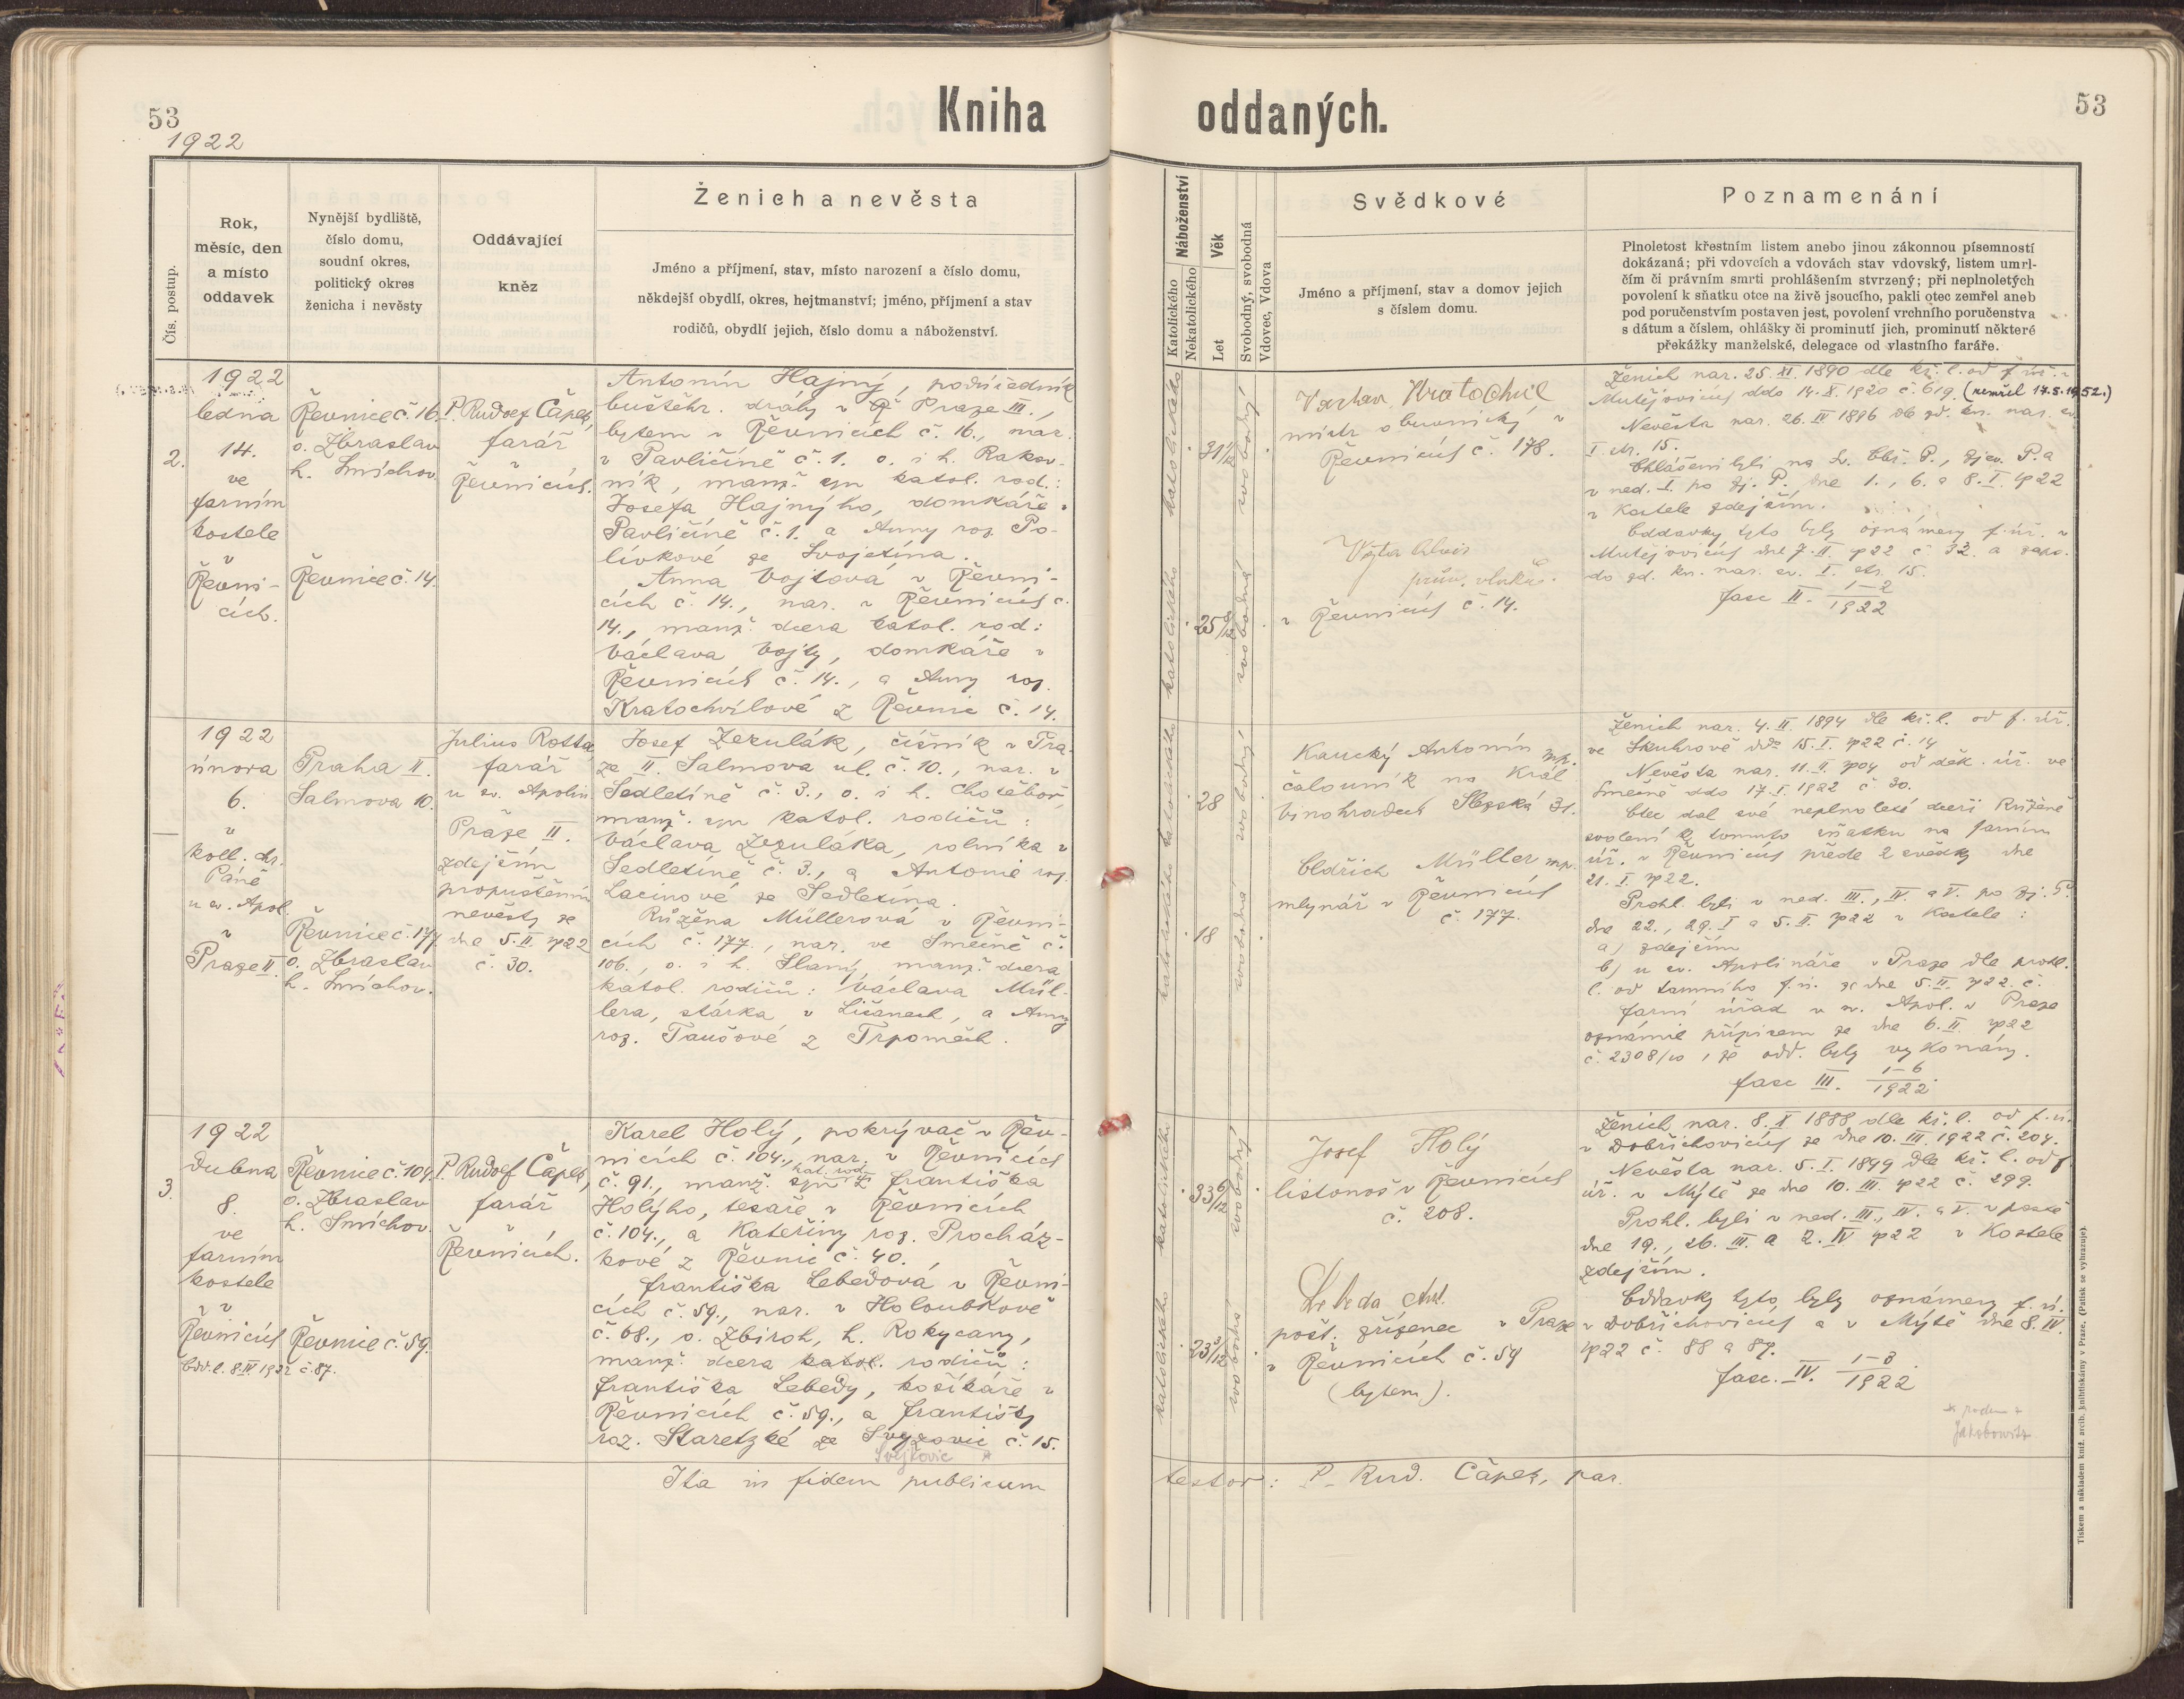 53
1922
Kniha oddaných.
53
Čís. postup.
Rok,
měsíc, den
a místo
oddavek
Nynější bydliště,
číslo domu,
soudní okres,
politický okres
ženicha i nevěsty
Oddávající
kněz
Ženich a nevěsta
Jméno a příjmení, stav, místo narození a číslo domu,
někdejší obydlí, okres, hejtmanství; jméno, příjmení a stav
rodičů, obydlí jejich, číslo domu a náboženství.
Náboženství
Katolického
Nekatolického
Věk
Let
Svobodný, svobodná
Vdovec, Vdova
Svědkové
Jméno a příjmení, stav a domov jejich
s číslem domu.
Poznamenání
Plnoletost křestním listem anebo jinou zákonnou písemností
dokázaná; při vdovcích a vdovách stav vdovský, listem umrl-
čím či právním smrti prohlášením stvrzený; při neplnoletých
povolení k sňatku otce na živě jsoucího, pakli otec zemřel aneb
pod poručenstvím postaven jest, povolení vrchního poručenstva
s dátum a číslem, ohlášky či prominutí jich, prominutí některé
překážky manželské, delegace od vlastního faráře.
2.
1922
ledna
14.
ve
farním
kostele
v
Řevni-
cích.
Řevnice č. 16.
o. Zbraslav
h. Smíchov.
Řevnice č. 14.
P. Rudolf Čápek,
farář
v
Řevnicích.
Antonín Hajný, podúředník
buštěhr. dráhy v Praze III.,
bytem v Řevnicích č. 16., nar.
v Pavlíčíně č. 1. o. i h. Rakov-
ník, manž. syn katol. rod.:
Josefa Hajnýho, domkáře v
Pavlíčíně č. 1. a Anny roz. Po-
lívkové ze Svojetína.
Anna Vojtová v Řevni-
cích č. 14., nar. v Řevnicích č.
14., manž. dcera katol. rod.:
Václava Vojty, domkáře v
Řevnicích č. 14., a Anny roz.
Kratochvílové z Řevnic č. 14.
katolického
31 1/12
svobodný
katolického
25 9/12
svobodná
Václav Kratochvíl
mistr obuvnický v
Řevnicích č. 178.
Vojta Alois
prův. vlaků č.
v Řevnicích č. 14.
Ženich nar. 25. XI. 1890 dle kř. l. od f. úř. v
Mutějovicích ddo 14. X. 1920 č. 619. (zemřel 17.5.1952.)
Nevěsta nar. 26. IV 1896 dle zd. kn. nar. sv.
I. str. 15.
Ohlášeni byli na sv. Obř. P., Zjev. P. a
v ned. I. po Zj. P. dne 1., 6. a 8. I. 1922
v kostele zdejším.
Oddavky tyto byly oznámeny f. úř. v
Mutějovicích dne 7. II. 1922 č. 32. a zazn.
do zd. kn. nar. sv. I. str. 15.
fasc II. 1-2/1922
1922
února
6.
v
koll. chr.
Páně
u sv. Apol.
v
Praze II.
Praha II.
Salmova 10.
Řevnice č. 177
o. Zbraslav
h. Smíchov.
Julius Rotta,
farář
u sv. Apolin.
v
Praze II.
zdejším
propuštěním
nevěsty ze
dne 5. II. 1922
č. 30.
Josef Zezulák, číšník v Pra-
ze II. Salmova ul. č. 10., nar. v
Sedletíně č. 3., o. i h. Chotěboř,
manž. syn katol. rodičů:
Václava Zezuláka, rolníka v
Sedletíně č. 3., a Antonie roz.
Lacinové ze Sedletína.
Růžena Müllerová v Řevni-
cích č. 177., nar. ve Smečně č.
106., o. i h. Slaný, manž. dcera
katol. rodičů: Václava Mül-
lera, stárka v Ličanech, a Anny
roz. Taušové z Trpoměch.
katolického
28
svobodný
katolického
18
svobodná
Kraucký Antonín mp.
čalouník na Král
Vinohradech Slezská 31.
Oldřich Müller mp.
mlynář v Řevnicích
č. 177.
Ženich nar. 4. II 1894 dle kř. l. od f. úř.
ve Skuhrově ddo 15. I. 1922 č. 14
Nevěsta nar. 11. II. 1904 od děk. úř. ve
Smečně ddo 17. I. 1922 č. 30.
Otec dal své neplnoleté dceři Růženě
svolení k tomuto sňatku na farním
úř. v Řevnicích přede 2 svědky dne
21. I. 1922.
Prohl. byli v ned. III., IV. a V. po Zj. P.
dne 22., 29. I a 5. II. 1922 v kostele:
a) zdejším
b) u sv. Apolináře v Praze dle prohl.
l. od tamního f. ú. ze dne 5. II. 1922. č.
farní úřad u sv. Apol. v Praze
oznámil přípisem ze dne 6. II. 1922
č. 2308/, že odd. byly vykonány.
fasc III. 1-6/1922
3.
1922
dubna
8.
ve
farním
kostele
v
Řevnicích
Odd. l. 8. IV 1922 č. 87.
Řevnice č. 104.
o. Zbraslav
h. Smíchov.
Řevnice č. 59.
P. Rudolf Čápek,
farář
v
Řevnicích.
Karel Holý, pokrývač v Řev-
nicích č. 104., nar. v Řevnicích
kat. rod.
č. 91., manž. syn Františka
Holýho, tesaře v Řevnicích
č. 104., a Kateřiny roz. Procház-
kové z Řevnic č. 40.
Františka Lebedová v Řevni-
cích č. 59., nar. v Holoubkově
č. 68., o. Zbiroh, h. Rokycany,
manž. dcera katol. rodičů:
Františka Lebedy, košíkáře v
Řevnicích č. 59., a Františky
roz. Staretzké ze Svyzovic č. 15.
Svejkovic *
katolického
33 6/12
svobodný
katolického
23 3/12
svobodná
Josef Holý
listonoš v Řevnicích
č. 208.
Lebeda Ant.
pošt. zřízenec v Praze
v Řevnicích č. 59
(bytem).
Ženich nar. 8. X 1888 dle kř. l. od f. ú.
v Dobřichovicích ze dne 10. III. 1922 č. 204.
Nevěsta nar. 5. I. 1899 dle kř. l. od f.
úř. v Mýtě ze dne 10. III. 1922 č. 299.
Prohl. byli v ned. III., IV. a V. v postě
dne 19., 26. III. a 2. IV 1922 v kostele
zdejším.
Oddavky tyto byly oznámeny f. ú.
v Dobřichovicích a v Mýtě dne 8. IV.
1922 č. 88 a 89.
fasc. IV. 1-3/1922
Jakobowitz
Ita in fidem publicum testor: P. Rud. Čápek, par.
Tiskem a nákladem kniž. arcib. knihtiskárny v Praze. (Patisk se vyhrazuje.)